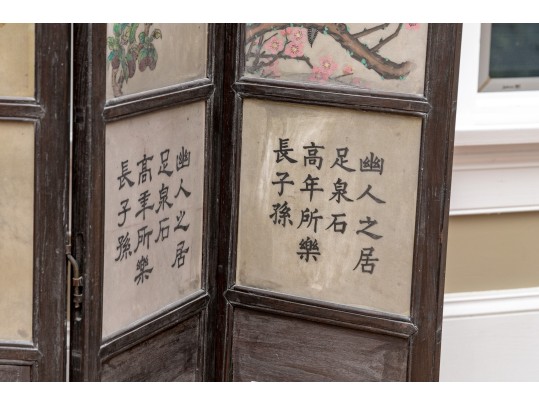 幽人之居
足泉石
高年所樂
長子孫
幽人之居
足泉石
高年所樂
長子孫